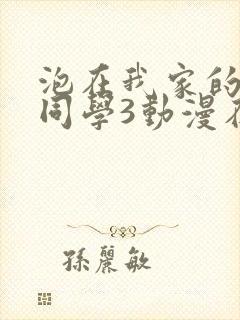 泡在我家的
同學3動漫在
孫麗敏